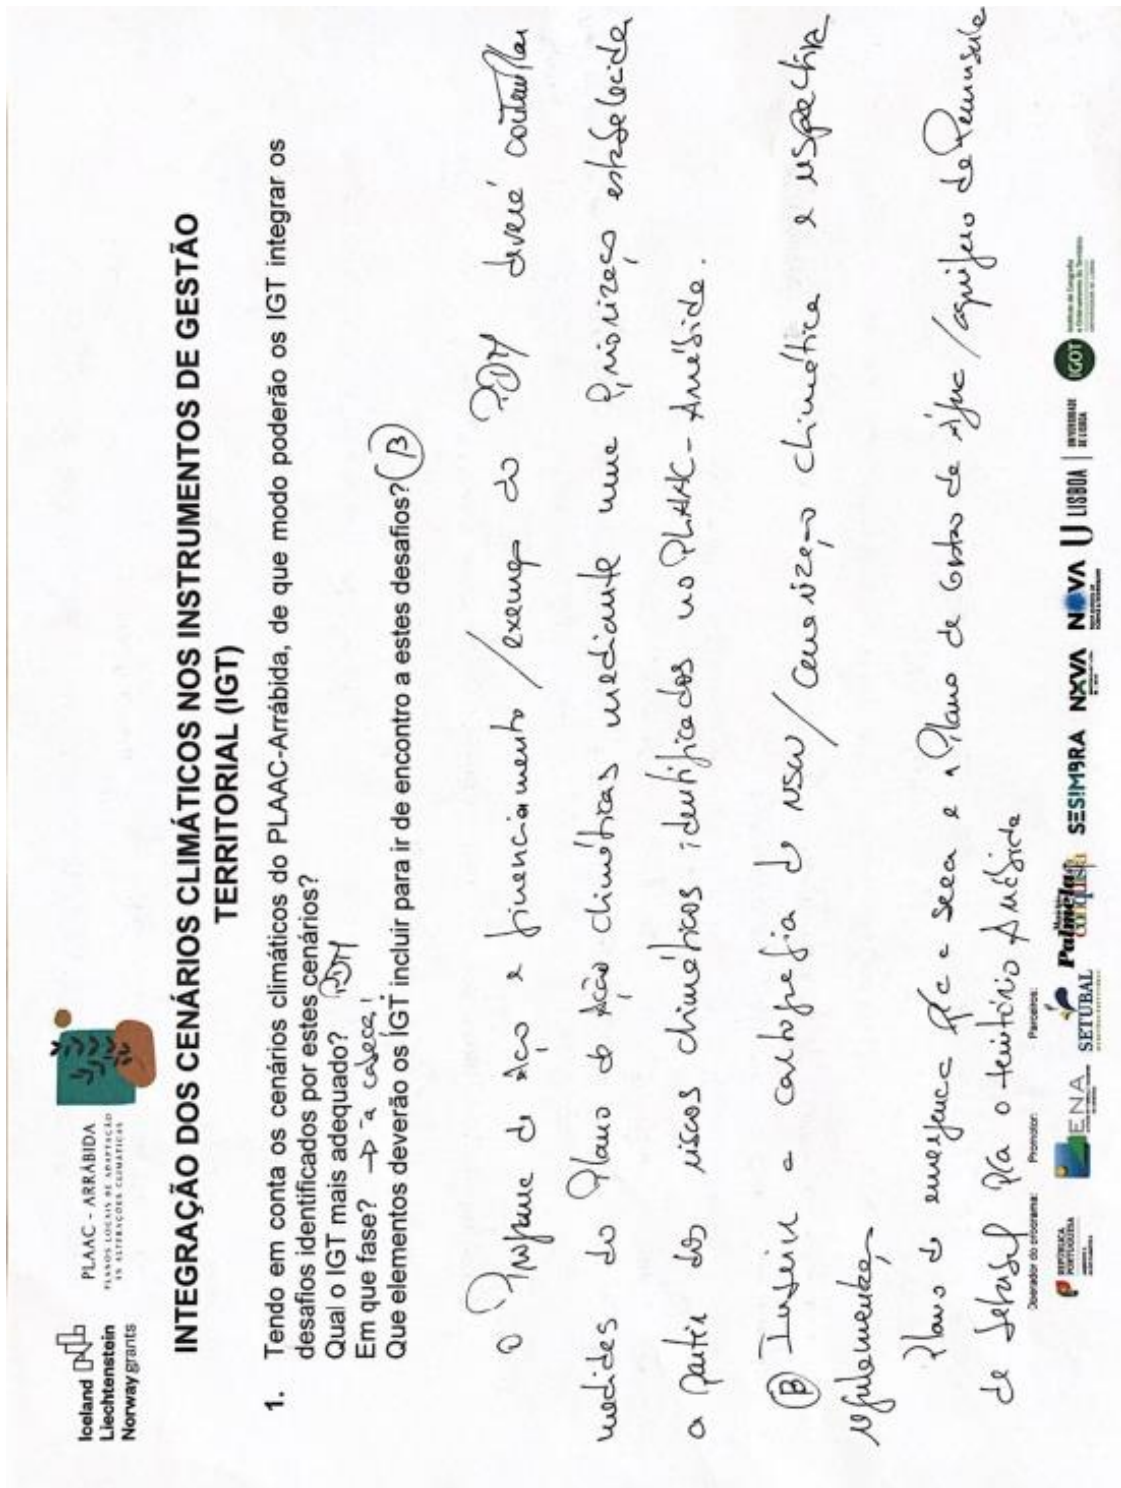 Iceland
Liechtenstein
Norway grants
PLAAC - ARRÁBIDA
PLANOS LOCAIS DE ADAPTAÇÃO
ÀS ALTERAÇÕES CLIMÁTICAS
INTEGRAÇÃO DOS CENÁRIOS CLIMÁTICOS NOS INSTRUMENTOS DE GESTÃO
TERRITORIAL (IGT)
1. Tendo em conta os cenários climáticos do PLAAC-Arrábida, de que modo poderão os IGT integrar os
desafios identificados por estes cenários?
Qual o IGT mais adequado? PDM
Em que fase? → a cabeça!
Que elementos deverão os IGT incluir para ir de encontro a estes desafios? B
o Programa de Ação e financiamento / execução do PDM deverá contemplar
medidas do Plano de Ação climáticas mediante uma priorização estabelecida
a partir dos riscos climáticos identificados no PLAAC-Arrábida.
B Inserir a cartografia do risco / climática e respectiva
Plano de emergência p/a a seca e Plano de Gestão de água / aquífero da Península
de Setúbal p/a o território Arrábida
Operador do programa:
Promotor:
Parceiros:
REPÚBLICA
PORTUGUESA
ENA
SETÚBAL
Palmela
SESIMBRA
NOVA
NOVA
U LISBOA
UNIVERSIDADE
DE LISBOA
IGOT